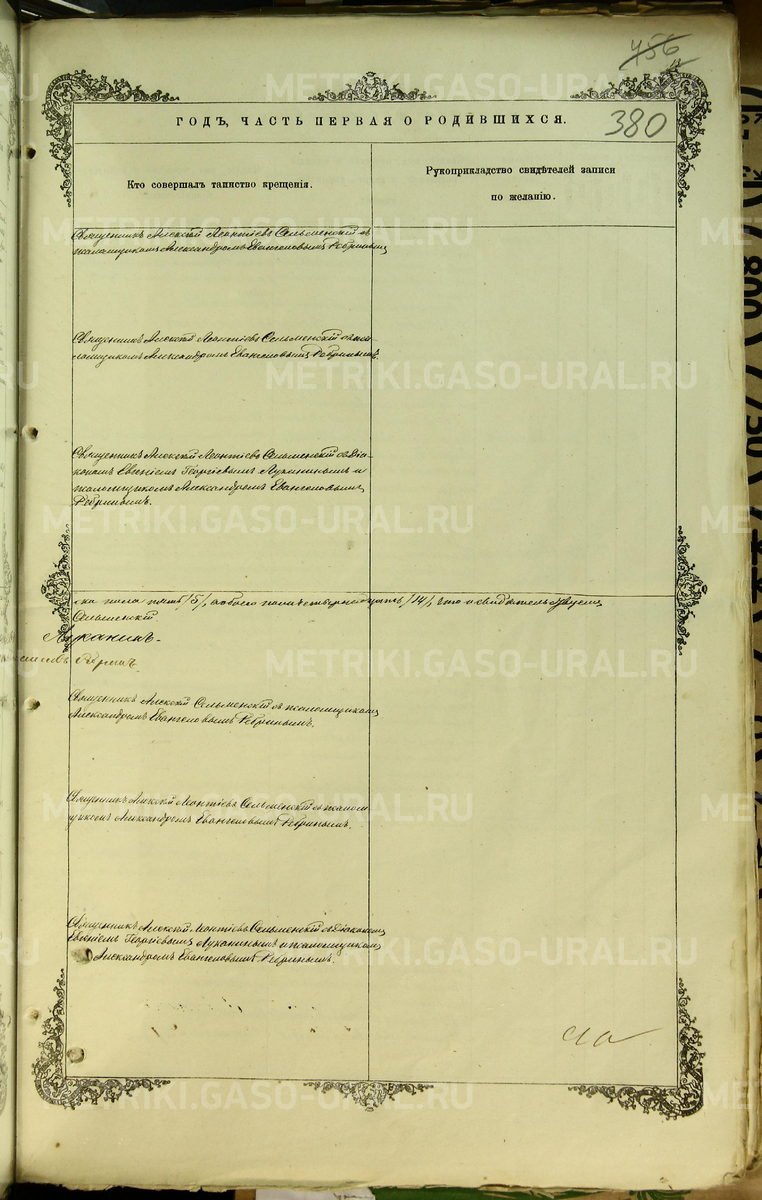 456
380
ГОДЪ, ЧАСТЬ ПЕРВАЯ О РОДИВШИХСЯ.
Кто совершалъ таинство крещенія.
Рукоприкладство свидѣтелей записи
по желанію.
Священникъ Алексій Леонтіевъ Сельменскій съ
псаломщикомъ Александромъ Евангеловымъ Ребринымъ
Священникъ Алексій Леонтіевъ Сельменскій съ пса-
ломщикомъ Александромъ Евангеловымъ Ребринымъ.
Священникъ Алексій Леонтіевъ Сельменскій съ діа-
кономъ Евгеніемъ Георгіевымъ Луканинымъ и
псаломщикомъ Александромъ Евангеловымъ
Ребринымъ.
ска пола пять /5/, а обоего пола четырнадцать /14/, что и свидѣтельствуемъ
Сельменскій
Луканинъ
Ребринъ
Священникъ Алексій Сельменскій съ псаломщикомъ
Александромъ Евангеловымъ Ребринымъ.
Священникъ Алексій Леонтіевъ Сельменскій съ псалом
щикомъ Александромъ Евангеловымъ Ребринымъ.
Священникъ Алексій Леонтіевъ Сельменскій съ діакономъ
Евгеніемъ Георгіевымъ Луканинымъ и псаломщикомъ
Александромъ Евангеловымъ Ребринымъ.
METRIKI.GASO-URAL.RU